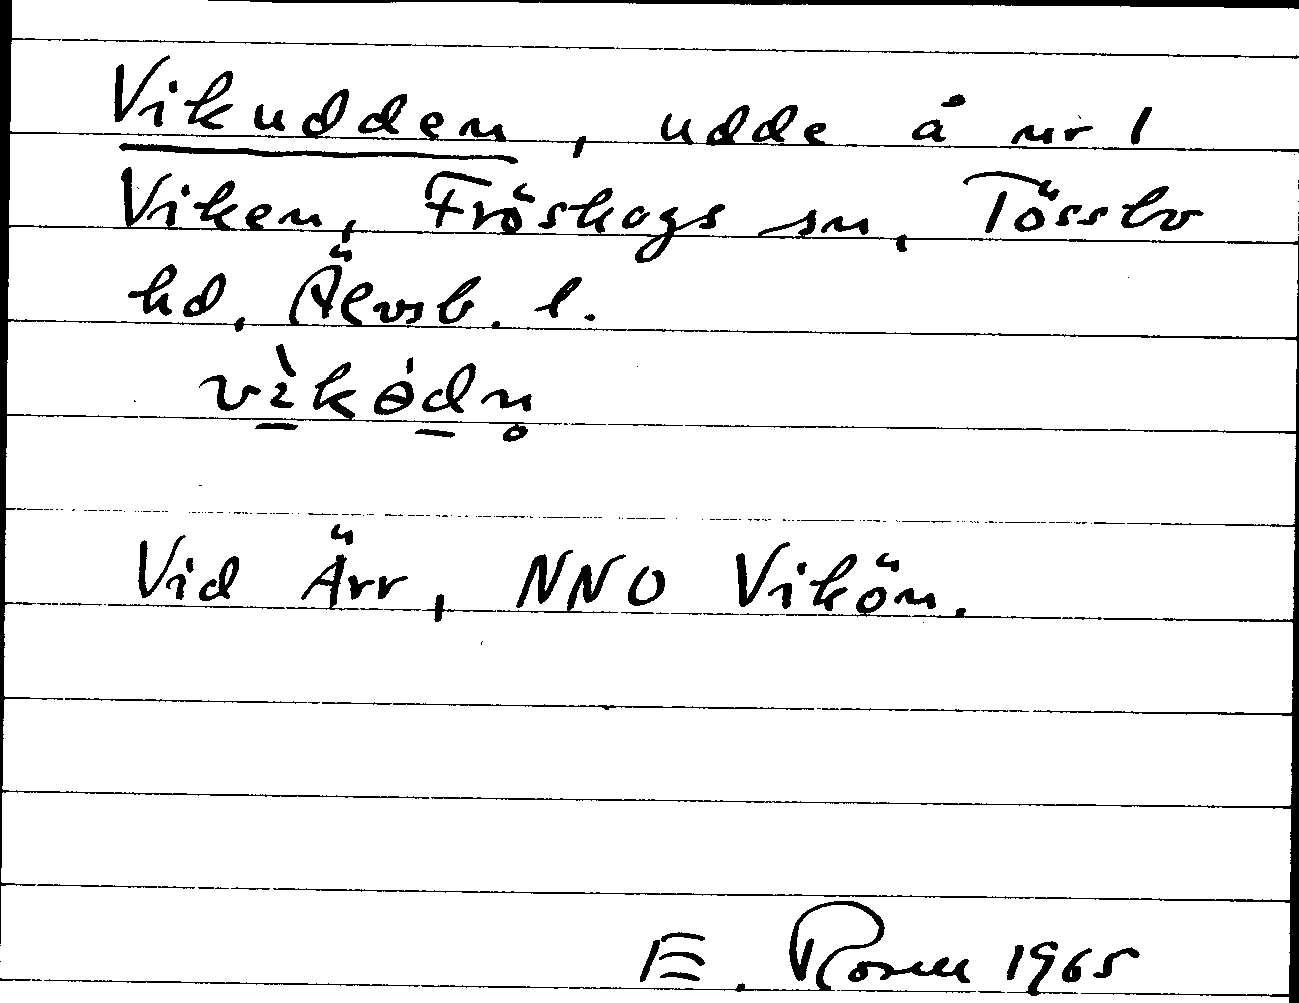 Vikudden, udde å nr 1
Viken, Fröskogs sn, Tössbo
hd, Älvsb. l.
vìkɵ́dn̥
Vid Ärr, NNO Vikön.
E. Rosell 1965